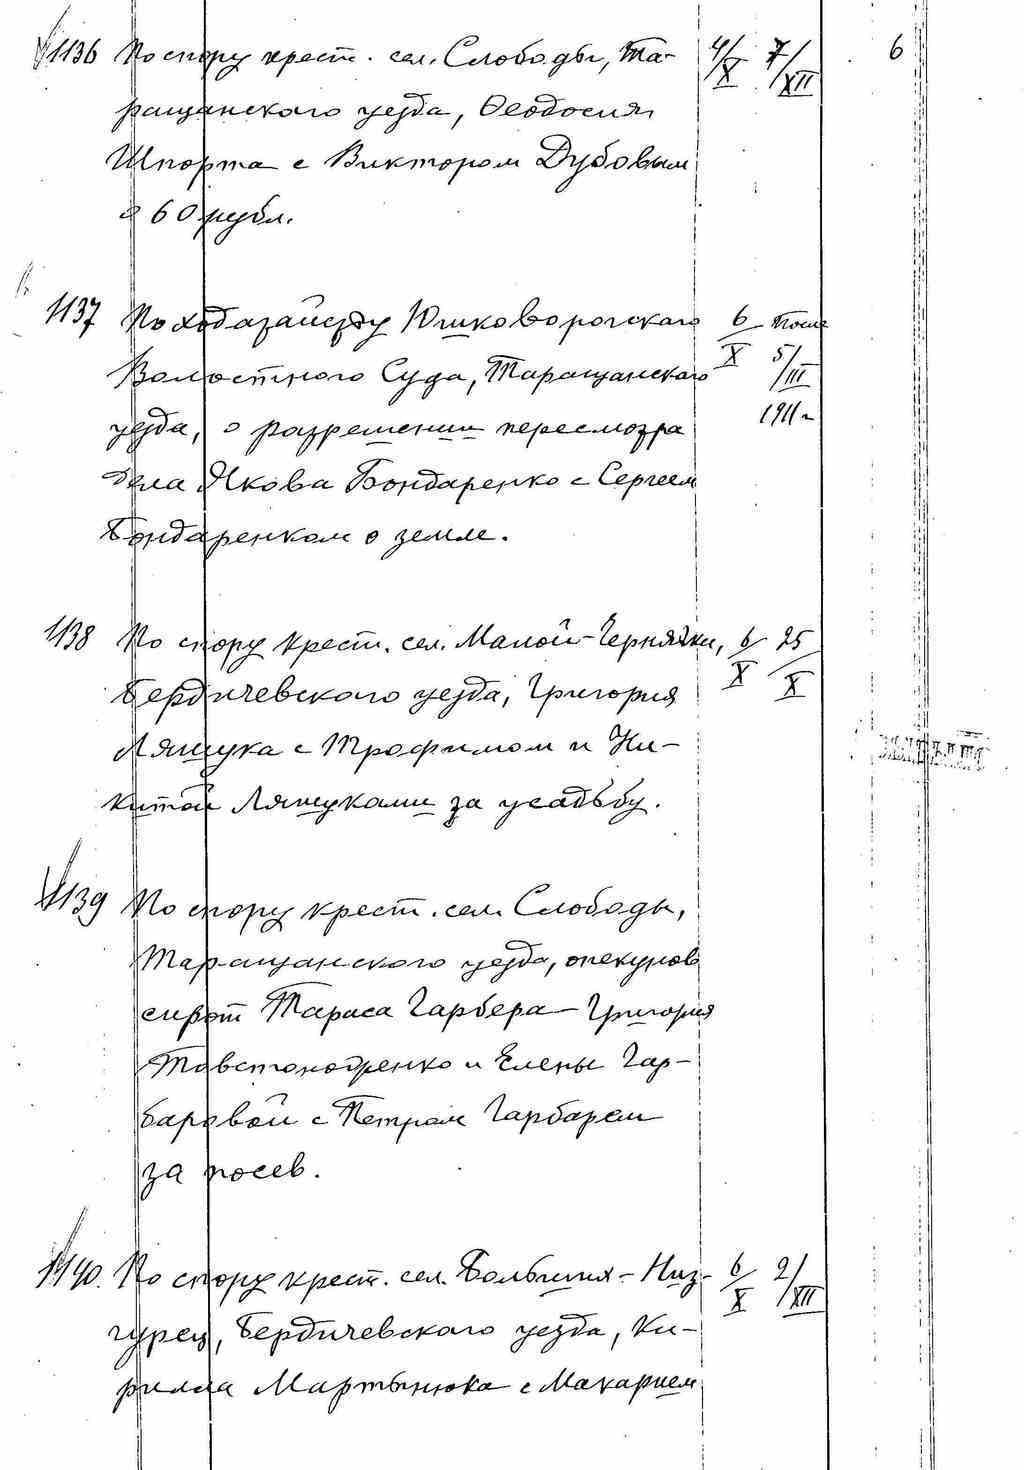 1136 По спору крест. сел. Слободы, Та- 4/X 7/XII 6
ращанского уезда, Феодосия
Шпорта с Виктором Дубовым
о 60 рубл.
1137 По ходатайству Юшковорогского 6/X После
Волостного Суда, Таращанского 5/III
уезда, о разрешении пересмотра 1911 г
дела Якова Бондаренко с Сергеем
Бондаренком о земле.
1138 По спору крест. сел. Малой-Чернявки, 6/X 25/X
Бердичевского уезда, Григория
Лящука с Трофимом и Ни-
китой Лящуками за усадьбу.
1139 По спору крест. сел. Слободы,
Таращанского уезда, опекунов
сирот Тараса Гарбера - Григория
Товстоногренко и Елены Гар-
баровой с Петром Гарбарем
за посев.
1140. По спору крест. сел. Больших-Низ- 6/X 2/XII
гурец, Бердичевского уезда, Ки-
рилла Мартынюка с Макарием